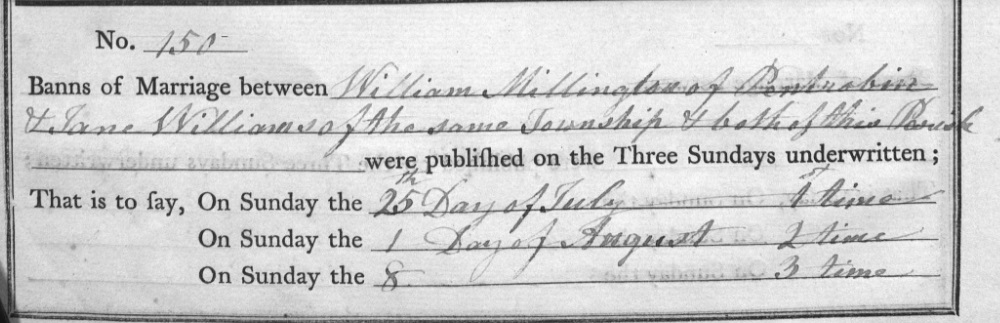 No. 150
Banns of Marriage between William Millington of Pentrobin
& Jane Williams of the same Township & both of this Parish
were publiſhed on the Three Sundays underwritten;
That is to ſay, On Sunday the 25th Day of July 1st time
On Sunday the 1 Day of August 2 time
On Sunday the 8 3 time